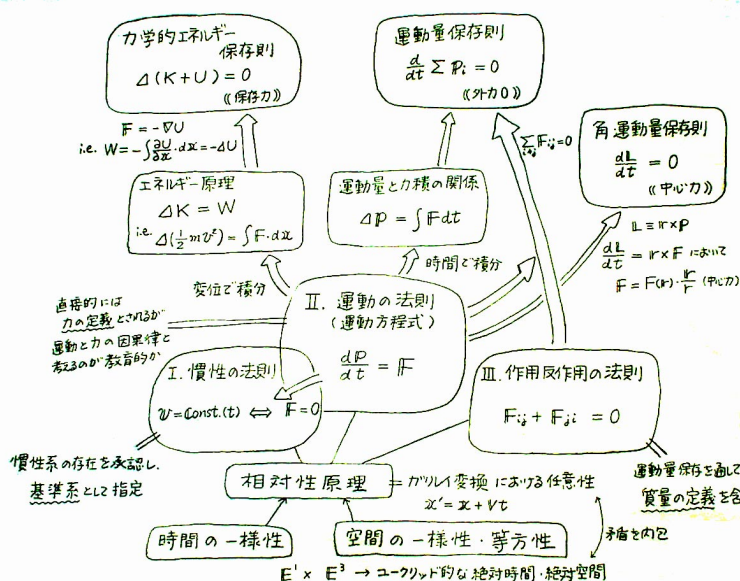 力学的エネルギー
保存則
Δ(K+U)=0
《保存力》
運動量保存則
d/dt Σ Pi = 0
《外力0》
F = -∇U
i.e. W = -∫∂U/∂x・dx = -ΔU
Σ Fij = 0
i≠j
角運動量保存則
dL/dt = 0
《中心力》
エネルギー原理
ΔK = W
i.e. Δ(1/2 mv²) = ∫F・dx
運動量と力積の関係
ΔP = ∫F dt
L ≡ r×P
dL/dt = r×F において
F = F(r)・r/r (中心力)
変位で積分
時間で積分
直接的には
力の定義とされるが
運動と力の因果律と
考えるのが教育的か
II. 運動の法則
(運動方程式)
dP/dt = F
I. 慣性の法則
v = Const.(t) ⇔ F = 0
III. 作用反作用の法則
Fij + Fji = 0
慣性系の存在を承認し、
基準系として指定
運動量保存を通して
質量の定義を含
相対性原理
= ガリレイ変換における任意性
x' = x + Vt
矛盾を内包
時間の一様性
空間の一様性・等方性
E¹ × E³ → ユークリッド的な絶対時間・絶対空間